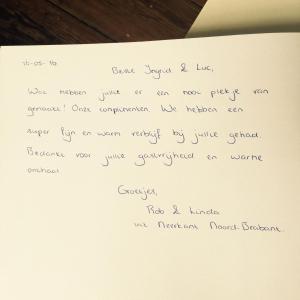 16-05-16
Beste Ingrid & Luc,
Wat hebben jullie er een mooi plekje van
gemaakt! Onze complimenten. We hebben een
super fijn en warm verblijf bij jullie gehad.
Bedankt voor jullie gastvrijheid en warme
onthaal
Groetjes,
Rob & Linda
uit Meerkant Noord-Brabant.